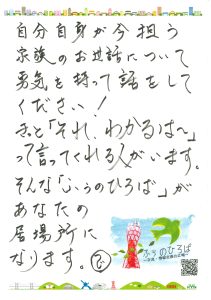 自分自身が今担う
家族のお世話について
勇気を持って話をして
ください！
きっと「それ、わかるは〜」
って言ってくれる人がいます。
そんな「ふぅのひろば」が
あなたの
居場所に
なります。
ふぅのひろば